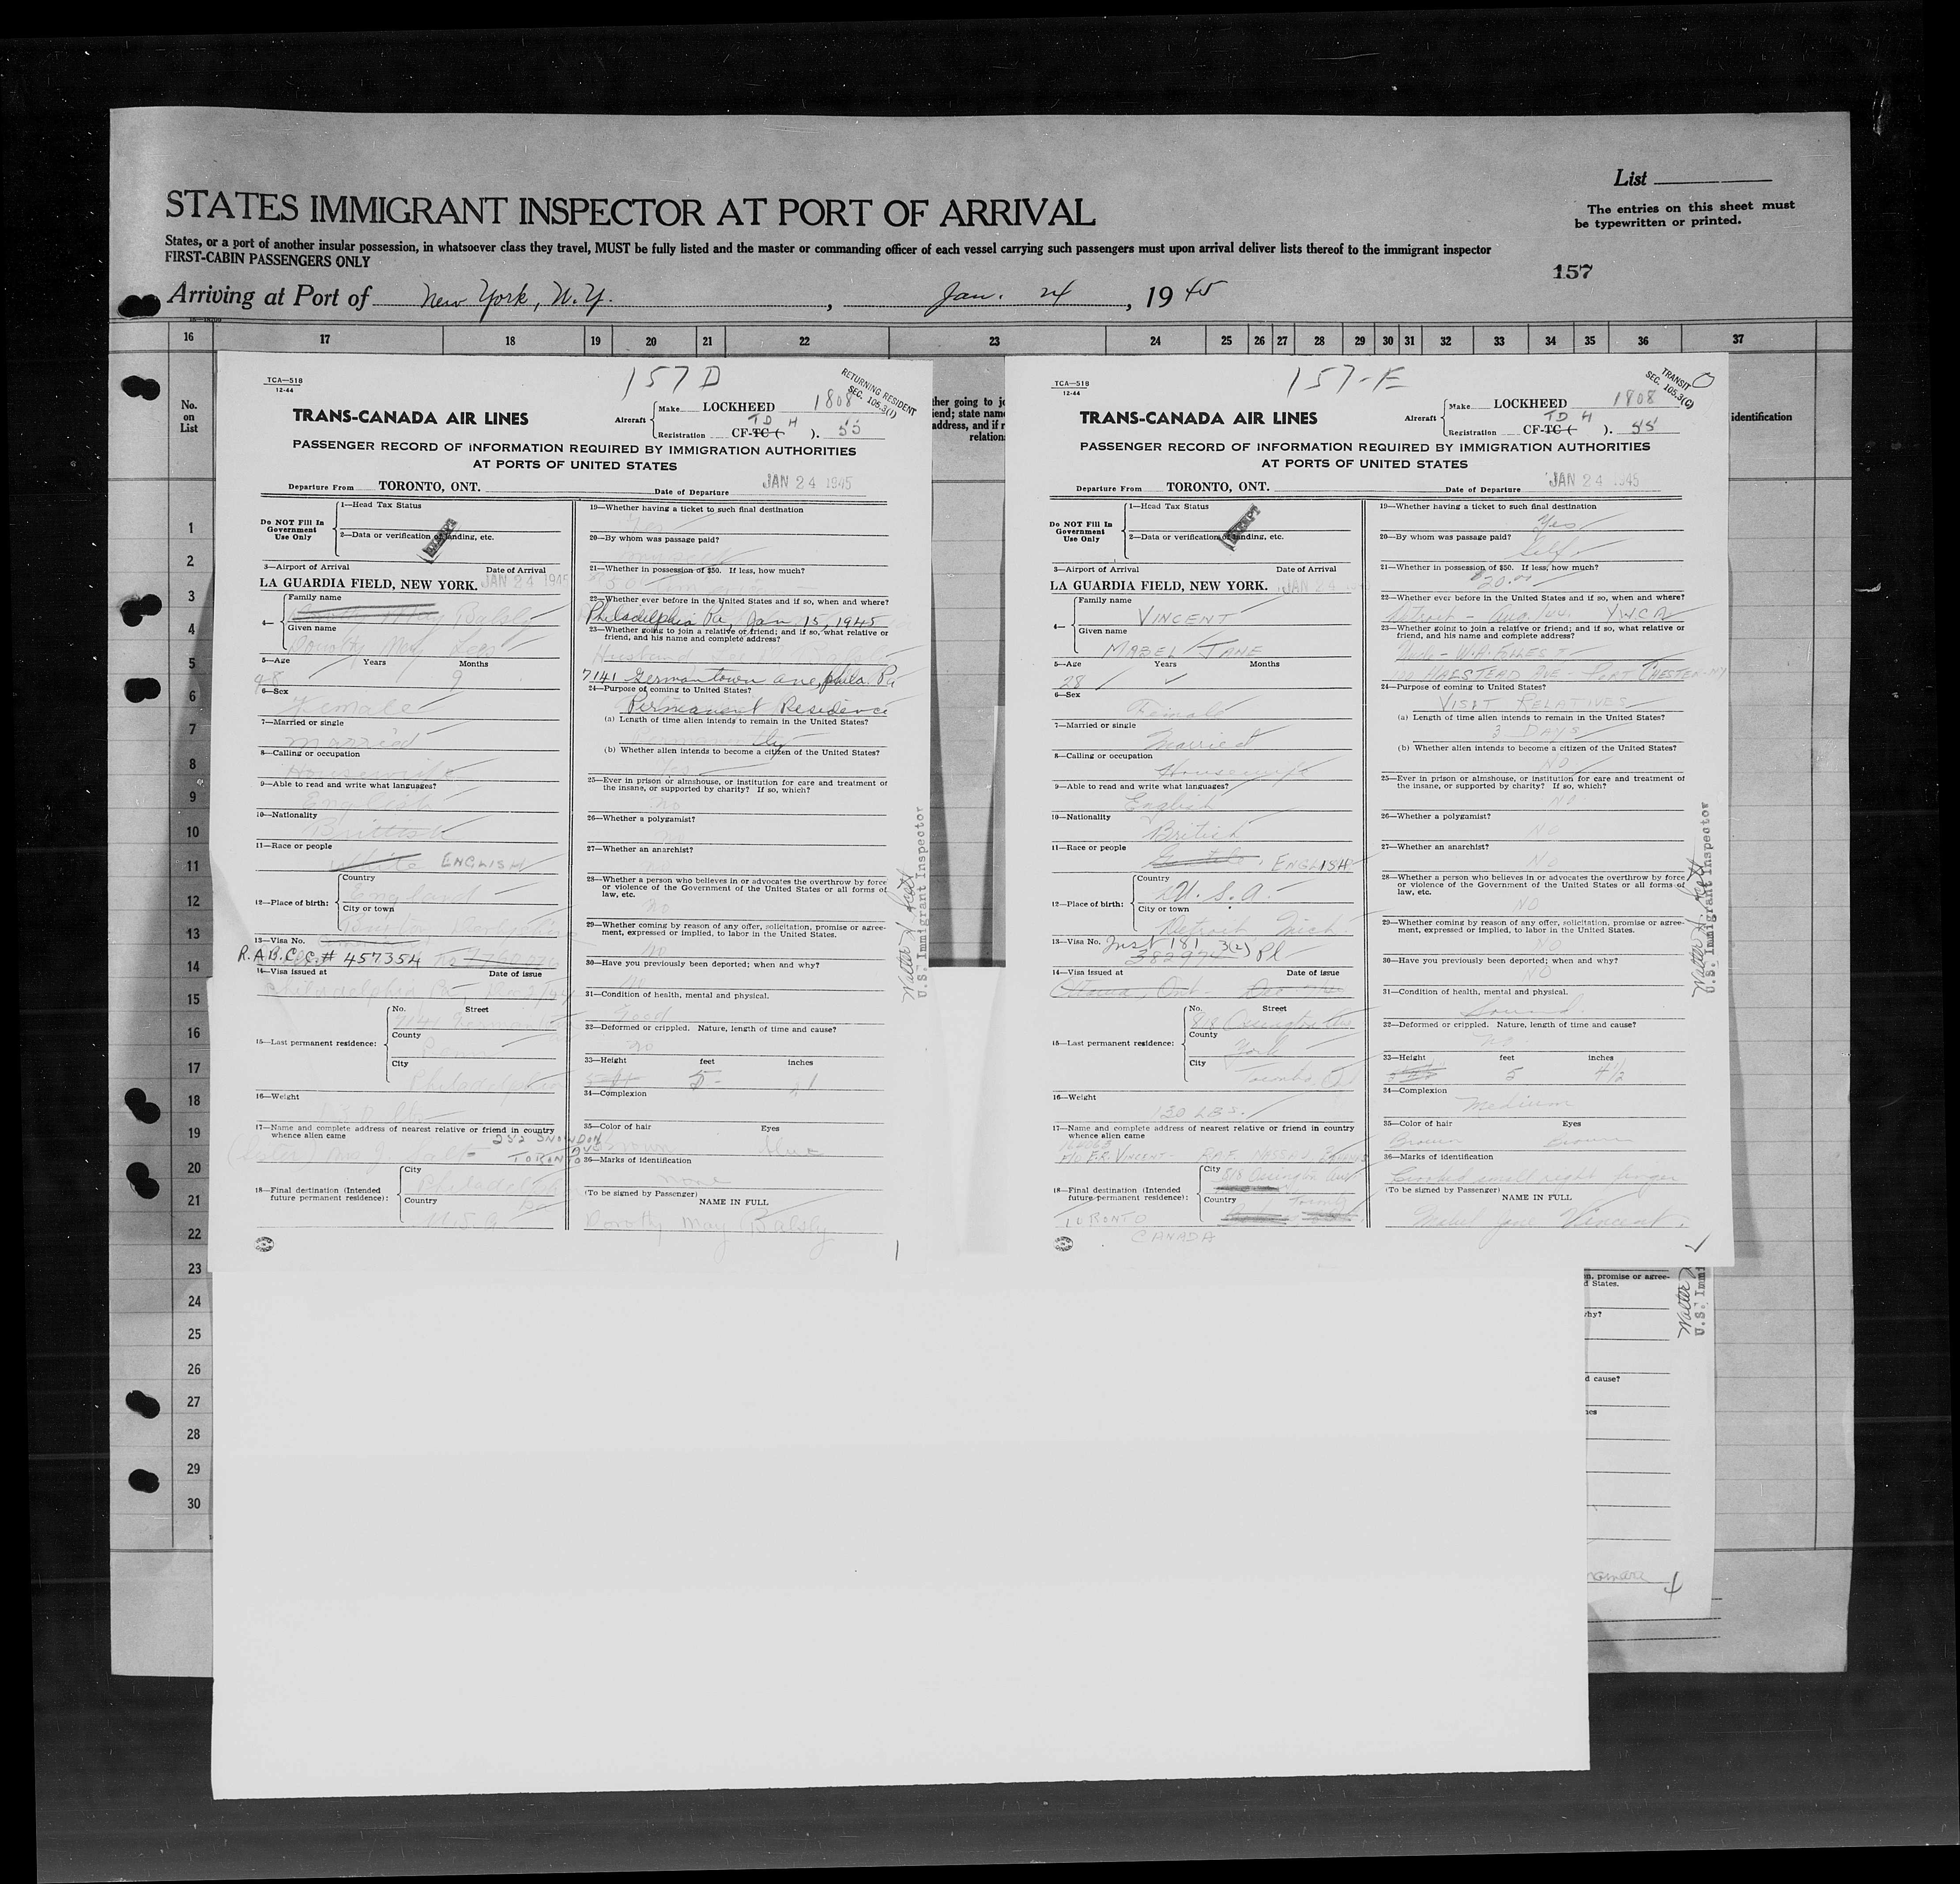 List
The entries on this sheet must
be typewritten or printed.
STATES IMMIGRANT INSPECTOR AT PORT OF ARRIVAL
States, or a port of another insular possession, in whatsoever class they travel, MUST be fully listed and the master or commanding officer of each vessel carrying such passengers must upon arrival deliver lists thereof to the immigrant inspector
FIRST-CABIN PASSENGERS ONLY
157
Arriving at Port of New York, N.Y., Jan. 24, 1945
16 17 18 19 20 21 22 23 24 25 26 27 28 29 30 31 32 33 34 35 36 37
No.
on
List
identification
1
2
3
4
5
6
7
8
9
10
11
12
13
14
15
16
17
18
19
20
21
22
23
24
25
26
27
28
29
30
TCA—518
12-44
157 D
RETURNING RESIDENT
SEC. 105.3(1)
TRANS-CANADA AIR LINES
Aircraft Make LOCKHEED 1808
TD H
Registration CF-TC ( ). 55
PASSENGER RECORD OF INFORMATION REQUIRED BY IMMIGRATION AUTHORITIES
AT PORTS OF UNITED STATES
Departure From TORONTO, ONT. Date of Departure JAN 24 1945
Do NOT Fill In
Government
Use Only
1—Head Tax Status
2—Data or verification of landing, etc.
3—Airport of Arrival Date of Arrival
LA GUARDIA FIELD, NEW YORK. JAN 24 1945
4— Family name
Balsly
Given name
Dorothy May
5—Age Years Months
9
6—Sex
Female
7—Married or single
Married
8—Calling or occupation
Housewife
9—Able to read and write what languages?
English
10—Nationality
British
11—Race or people
White ENGLISH
12—Place of birth: Country
England
City or town
13—Visa No.
R.A.B.C.C.# 457354
14—Visa issued at Date of issue
Philadelphia Pa
15—Last permanent residence: No. Street
7141
County
City
Philadelphia
16—Weight
17—Name and complete address of nearest relative or friend in country
whence alien came
252 SNOWDON AVE
(Sister) Mrs J. Salt TORONTO
18—Final destination (Intended
future permanent residence): City
Philadelphia
Country
U.S.A.
19—Whether having a ticket to such final destination
Yes
20—By whom was passage paid?
21—Whether in possession of $50. If less, how much?
22—Whether ever before in the United States and if so, when and where?
Philadelphia Pa, Jan 15, 1945
23—Whether going to join a relative or friend; and if so, what relative or
friend, and his name and complete address?
Husband
7141 Germantown ave, phila. Pa
24—Purpose of coming to United States?
Permanent Residence
(a) Length of time alien intends to remain in the United States?
Permanently
(b) Whether alien intends to become a citizen of the United States?
25—Ever in prison or almshouse, or institution for care and treatment of
the insane, or supported by charity? If so, which?
No
26—Whether a polygamist?
No
27—Whether an anarchist?
28—Whether a person who believes in or advocates the overthrow by force
or violence of the Government of the United States or all forms of
law, etc.
No
29—Whether coming by reason of any offer, solicitation, promise or agree-
ment, expressed or implied, to labor in the United States.
No
30—Have you previously been deported; when and why?
No
31—Condition of health, mental and physical.
Good
32—Deformed or crippled. Nature, length of time and cause?
No
33—Height feet inches
5
34—Complexion
35—Color of hair Eyes
Brown blue
36—Marks of identification
None
(To be signed by Passenger) NAME IN FULL
Dorothy May Balsly
Walter H. Scott
U.S. Immigrant Inspector
TCA—518
12-44
157-E
TRANSIT
SEC. 105.3(G)
TRANS-CANADA AIR LINES
Aircraft Make LOCKHEED 1808
TD H
Registration CF-TC ( ). 55
PASSENGER RECORD OF INFORMATION REQUIRED BY IMMIGRATION AUTHORITIES
AT PORTS OF UNITED STATES
Departure From TORONTO, ONT. Date of Departure JAN 24 1945
Do NOT Fill In
Government
Use Only
1—Head Tax Status
2—Data or verification of landing, etc.
3—Airport of Arrival Date of Arrival
LA GUARDIA FIELD, NEW YORK. JAN 24
4— Family name
VINCENT
Given name
MABEL JANE
5—Age Years Months
28
6—Sex
Female
7—Married or single
Married
8—Calling or occupation
Housewife
9—Able to read and write what languages?
English
10—Nationality
British
11—Race or people
Gentile ENGLISH
12—Place of birth: Country
U.S.A.
City or town
Detroit Mich
13—Visa No. Inst 181 3(2) Pl
382974
14—Visa issued at Date of issue
Ottawa, Ont
15—Last permanent residence: No. Street
818 Ossington Ave
County
York
City
Toronto, Ont
16—Weight
130 LBS.
17—Name and complete address of nearest relative or friend in country
whence alien came
F/O E.R. VINCENT - R.A.F. NASSAU BAHAMAS
18—Final destination (Intended
future permanent residence): City
818 Ossington Ave
Country
Toronto
TORONTO
CANADA
19—Whether having a ticket to such final destination
Yes
20—By whom was passage paid?
Self.
21—Whether in possession of $50. If less, how much?
$20.00
22—Whether ever before in the United States and if so, when and where?
Detroit - Aug/44. YWCA
23—Whether going to join a relative or friend; and if so, what relative or
friend, and his name and complete address?
HALSTEAD AVE PORT CHESTER-NY
24—Purpose of coming to United States?
VISIT RELATIVES
(a) Length of time alien intends to remain in the United States?
3 DAYS
(b) Whether alien intends to become a citizen of the United States?
NO
25—Ever in prison or almshouse, or institution for care and treatment of
the insane, or supported by charity? If so, which?
NO
26—Whether a polygamist?
NO
27—Whether an anarchist?
NO
28—Whether a person who believes in or advocates the overthrow by force
or violence of the Government of the United States or all forms of
law, etc.
NO
29—Whether coming by reason of any offer, solicitation, promise or agree-
ment, expressed or implied, to labor in the United States.
NO
30—Have you previously been deported; when and why?
NO
31—Condition of health, mental and physical.
Sound.
32—Deformed or crippled. Nature, length of time and cause?
No.
33—Height feet inches
5 4½
34—Complexion
Medium
35—Color of hair Eyes
Brown Brown
36—Marks of identification
Crooked small right finger
(To be signed by Passenger) NAME IN FULL
Mabel Jane Vincent.
Walter H. Scott
U.S. Immigrant Inspector
n, promise or agree-
d States.
hy?
d cause?
hes
Walter
U.S. Immi